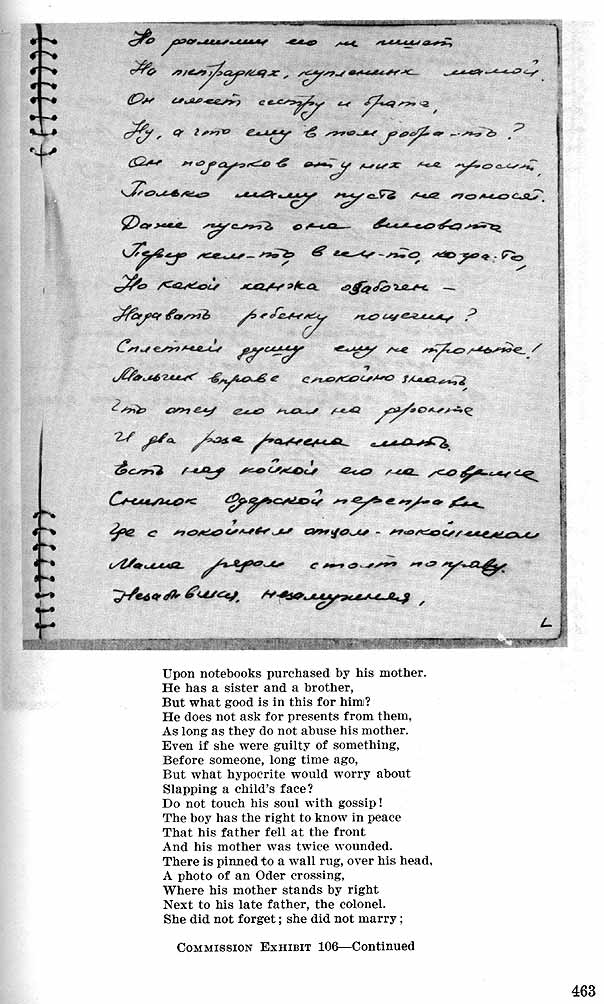 Но фамилии его не пишет
На тетрадках, купленных мамой.
Он имеет сестру и брата,
Ну, а что ему в том добра-то?
Он подарков от у них не просит,
Только маму пусть не поносят.
Даже пусть она виновата
Перед кем-то, в чем-то, когда-то,
Но какой ханжа озабочен –
Надавать ребенку пощечин?
Сплетней душу ему не троньте!
Мальчик вправе спокойно знать,
Что отец его пал на фронте
И два раза ранена мать.
Есть над койкой его на коврике
Снимок Одерской переправы
Где с покойным отцом-покойником
Мама рядом стоит по праву.
Незабывшая, незамужняя,
L
Upon notebooks purchased by his mother.
He has a sister and a brother,
But what good is in this for him?
He does not ask for presents from them,
As long as they do not abuse his mother.
Even if she were guilty of something,
Before someone, long time ago,
But what hypocrite would worry about
Slapping a child's face?
Do not touch his soul with gossip!
The boy has the right to know in peace
That his father fell at the front
And his mother was twice wounded.
There is pinned to a wall rug, over his head,
A photo of an Oder crossing,
Where his mother stands by right
Next to his late father, the colonel.
She did not forget; she did not marry;
COMMISSION EXHIBIT 106—Continued
463